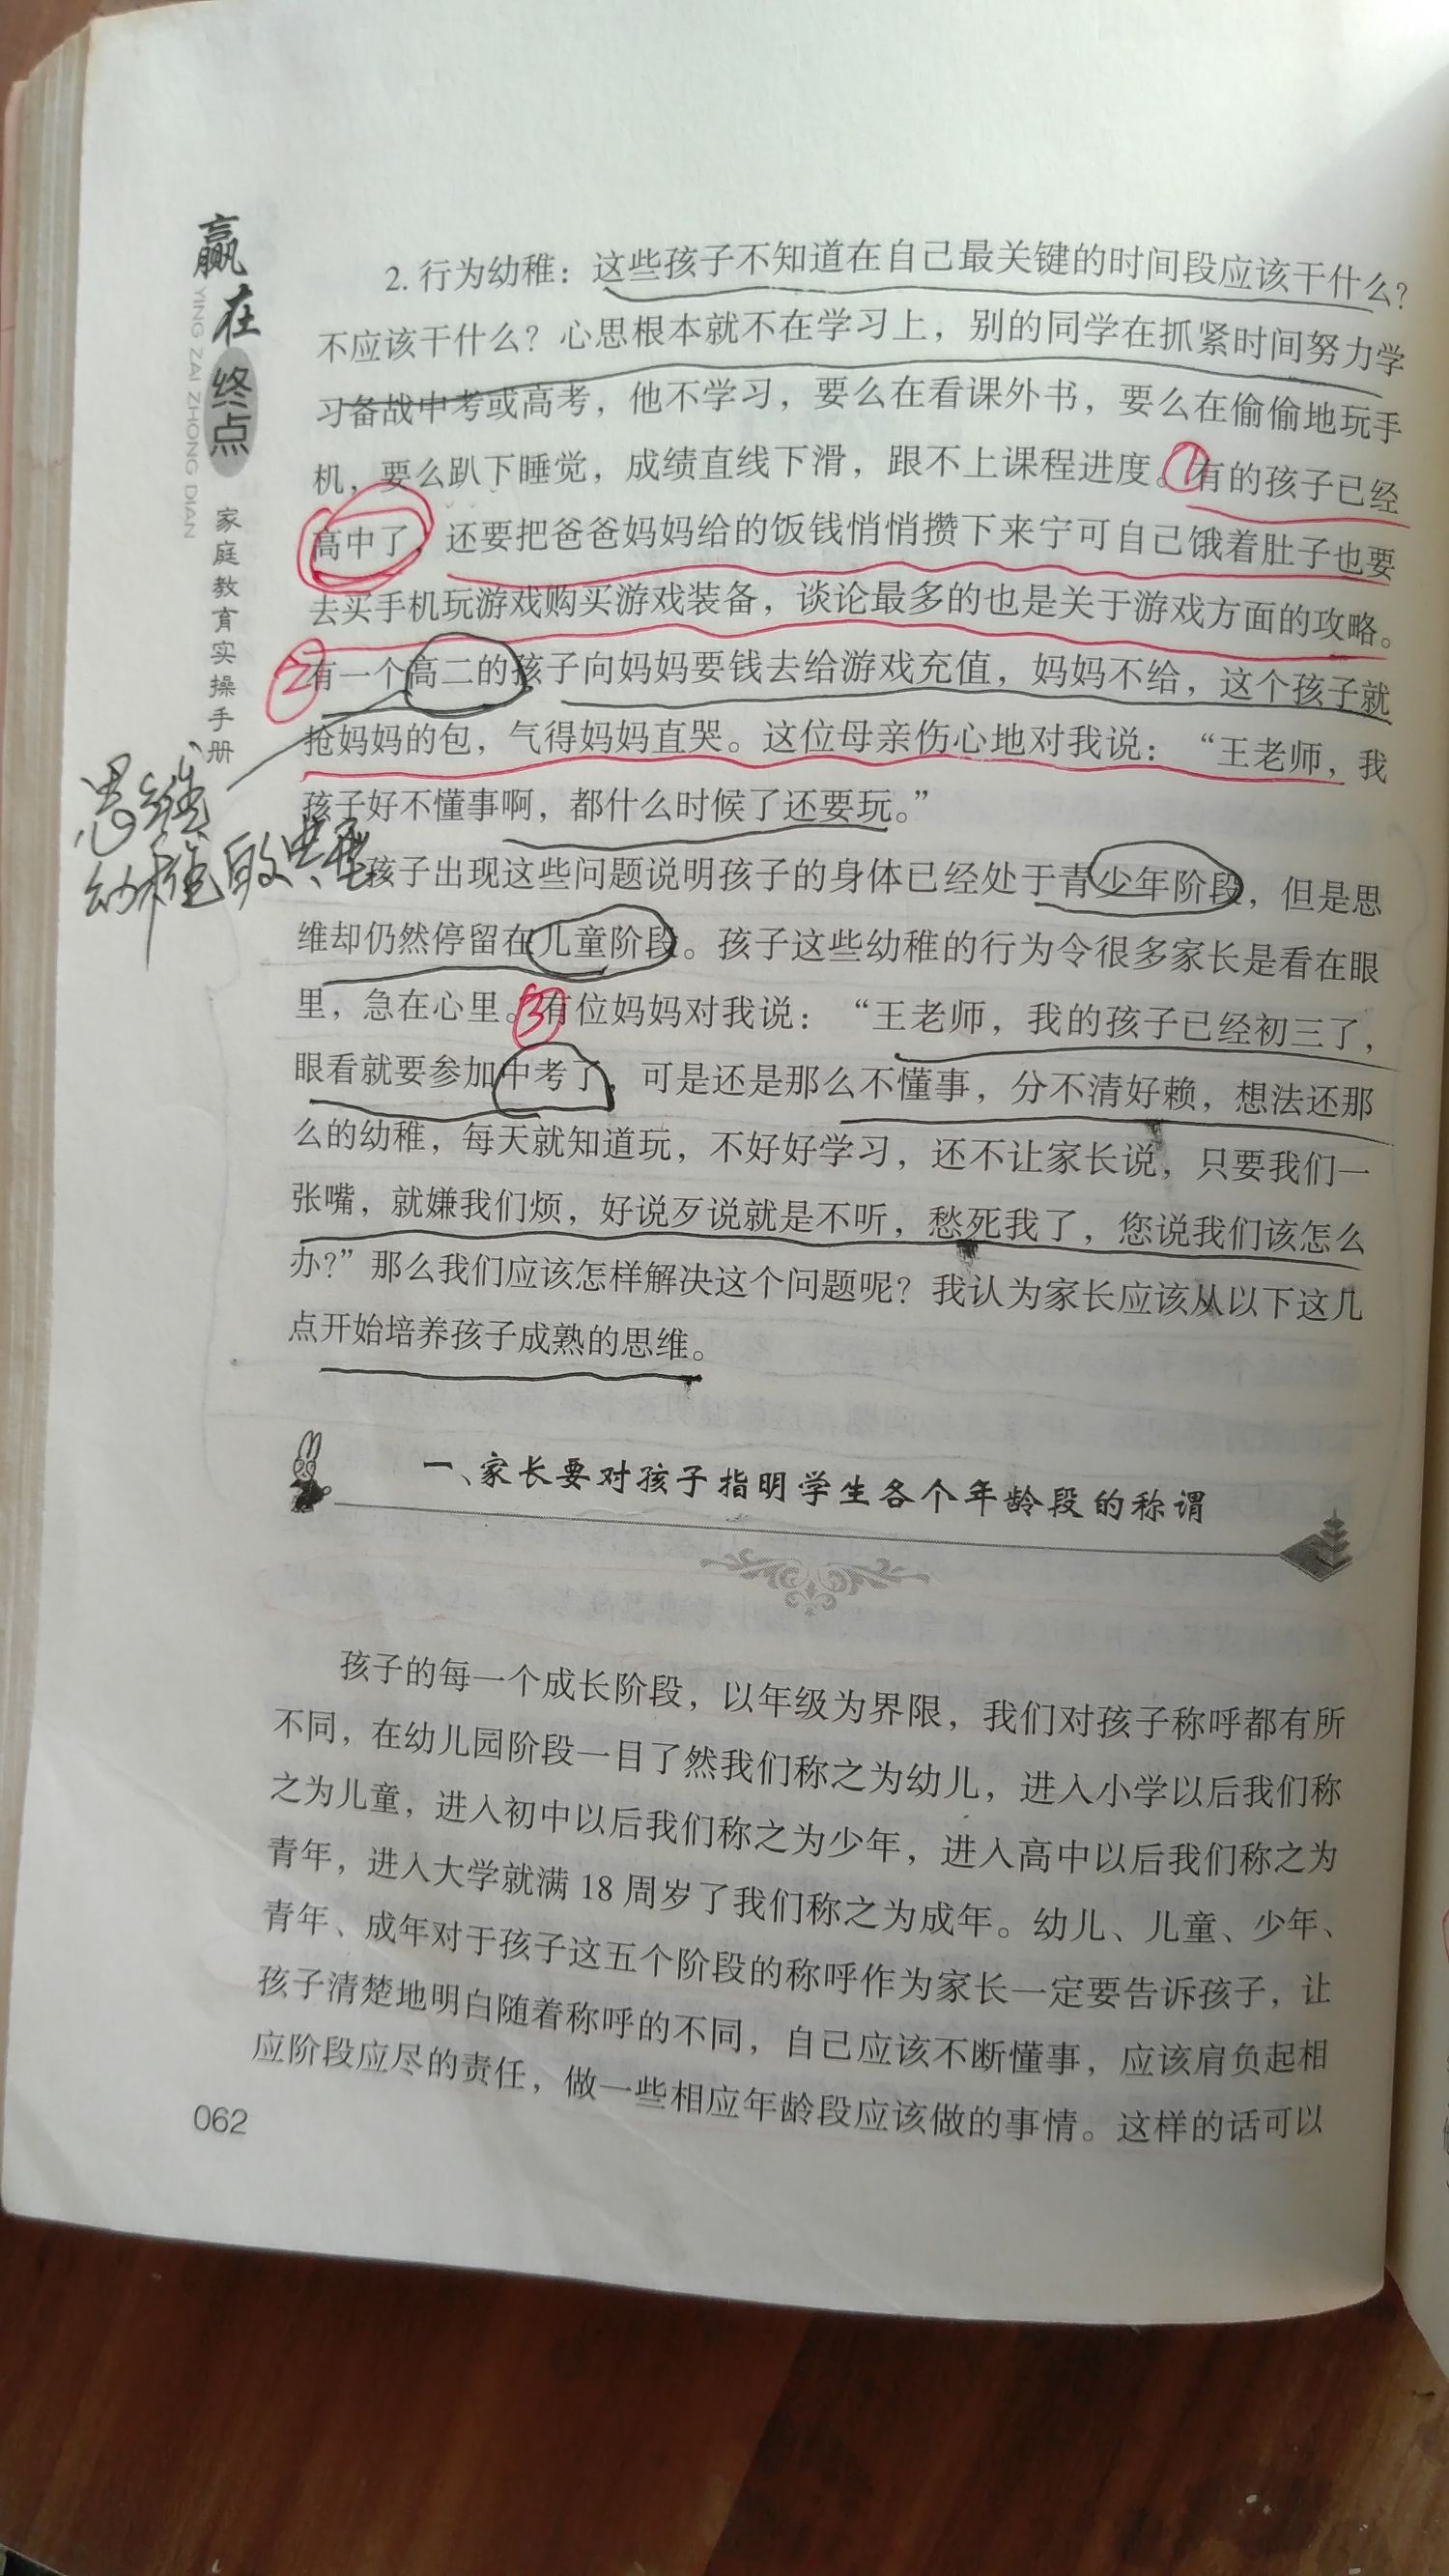 赢在终点
YING ZAI ZHONG DIAN
家庭教育实操手册
2. 行为幼稚：这些孩子不知道在自己最关键的时间段应该干什么？
不应该干什么？心思根本就不在学习上，别的同学在抓紧时间努力学
习备战中考或高考，他不学习，要么在看课外书，要么在偷偷地玩手
机，要么趴下睡觉，成绩直线下滑，跟不上课程进度。①有的孩子已经
高中了，还要把爸爸妈妈给的饭钱悄悄攒下来宁可自己饿着肚子也要
去买手机玩游戏购买游戏装备，谈论最多的也是关于游戏方面的攻略。
②有一个高二的孩子向妈妈要钱去给游戏充值，妈妈不给，这个孩子就
抢妈妈的包，气得妈妈直哭。这位母亲伤心地对我说：“王老师，我
孩子好不懂事啊，都什么时候了还要玩。”
思维
幼稚的典型
孩子出现这些问题说明孩子的身体已经处于青少年阶段，但是思
维却仍然停留在儿童阶段。孩子这些幼稚的行为令很多家长是看在眼
里，急在心里。③有位妈妈对我说：“王老师，我的孩子已经初三了，
眼看就要参加中考了，可是还是那么不懂事，分不清好赖，想法还那
么的幼稚，每天就知道玩，不好好学习，还不让家长说，只要我们一
张嘴，就嫌我们烦，好说歹说就是不听，愁死我了，您说我们该怎么
办？”那么我们应该怎样解决这个问题呢？我认为家长应该从以下这几
点开始培养孩子成熟的思维。
一、家长要对孩子指明学生各个年龄段的称谓
孩子的每一个成长阶段，以年级为界限，我们对孩子称呼都有所
不同，在幼儿园阶段一目了然我们称之为幼儿，进入小学以后我们称
之为儿童，进入初中以后我们称之为少年，进入高中以后我们称之为
青年，进入大学就满 18 周岁了我们称之为成年。幼儿、儿童、少年、
青年、成年对于孩子这五个阶段的称呼作为家长一定要告诉孩子，让
孩子清楚地明白随着称呼的不同，自己应该不断懂事，应该肩负起相
应阶段应尽的责任，做一些相应年龄段应该做的事情。这样的话可以
062